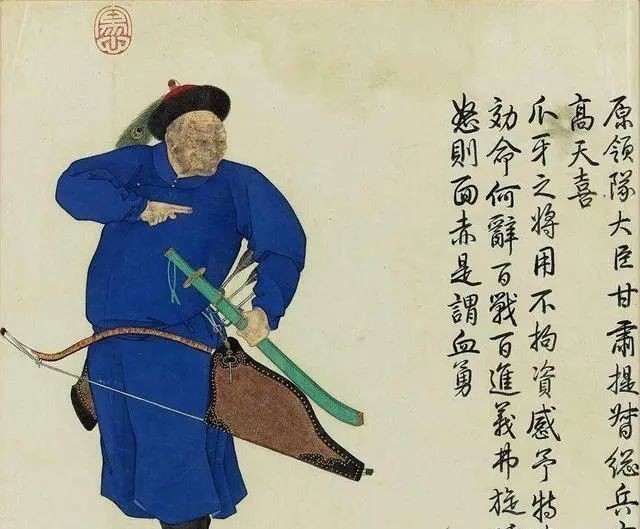 原領隊大臣甘肅提督緫兵
高天喜
爪牙之將用不拘資感予特
効命何辭百戰百進義弗旋
怒則面赤是謂血勇